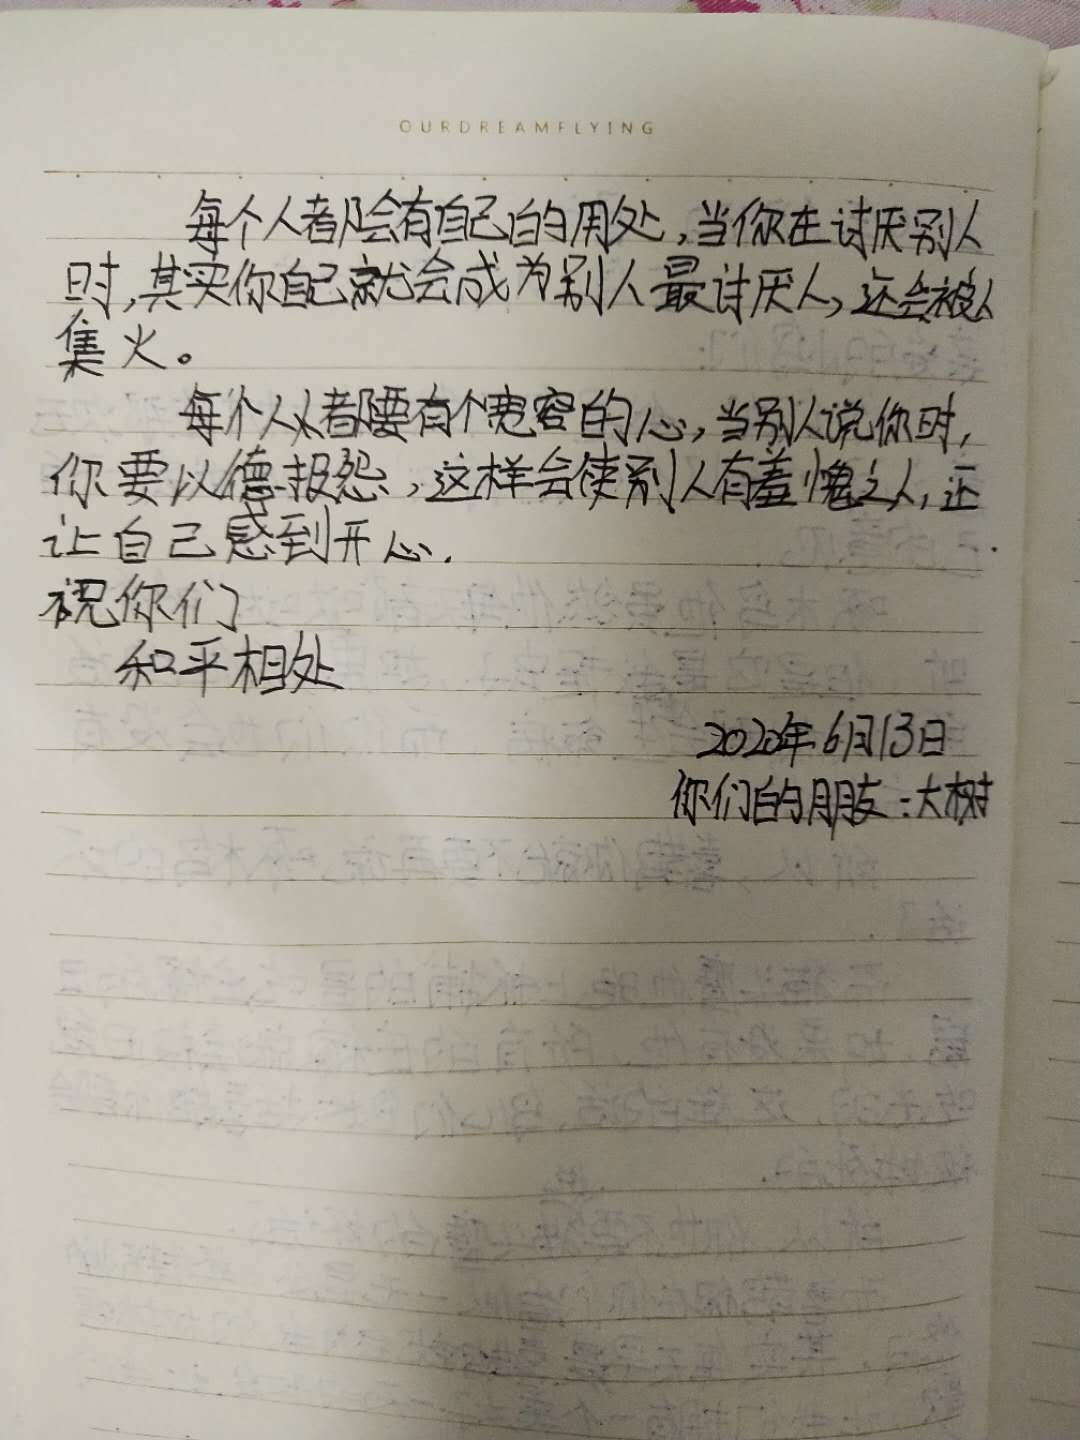 OURDREAMFLYING
每个人都会有自己的用处，当你在讨厌别人
时，其实你自己就会成为别人最讨厌人，还会被人
集火。
每个人都要有个宽容的心，当别人说你时，
你要以德报怨，这样会使别人有羞愧之人，还
让自己感到开心.
祝你们
和平相处
2020年6月13日
你们的朋友：大树